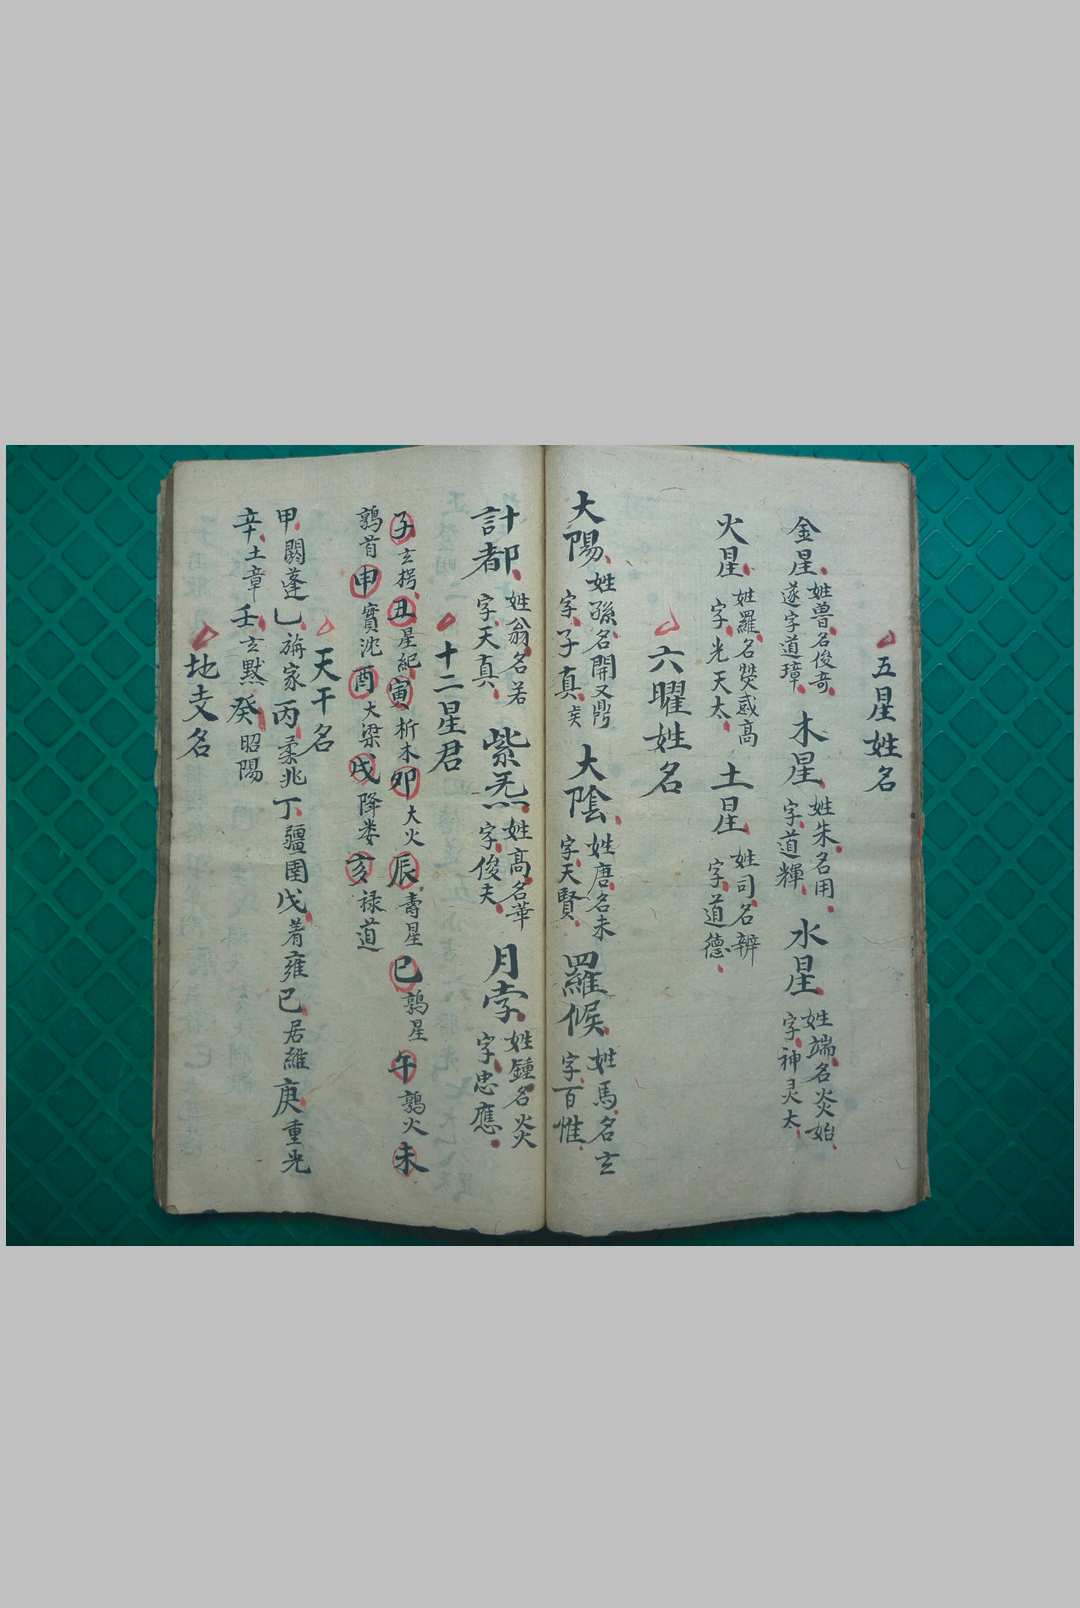 五星姓名
金星姓曽名俊竒遂字道璋 木星姓朱名用字道輝 水星姓端名炎始字神灵太
火星姓羅名熒惑高字光天太 土星姓司名辨字道德
六曜姓名
大陽姓孫名開又字子真 大陰姓唐名未字天賢 羅候姓馬名玄字百惟
計都姓翁名若字天真 紫炁姓高名華字俊夫 月孛姓鍾名炎字忠應
十二星君
子玄枵丑星紀寅析木卯大火辰壽星巳鶉星午鶉火未
鶉首申實沈酉大梁戌降娄亥禄道
天干名
甲閼蓬乙旃家丙柔兆丁疆圉戊着雍己居維庚重光
辛土章壬玄黙癸昭陽
地支名